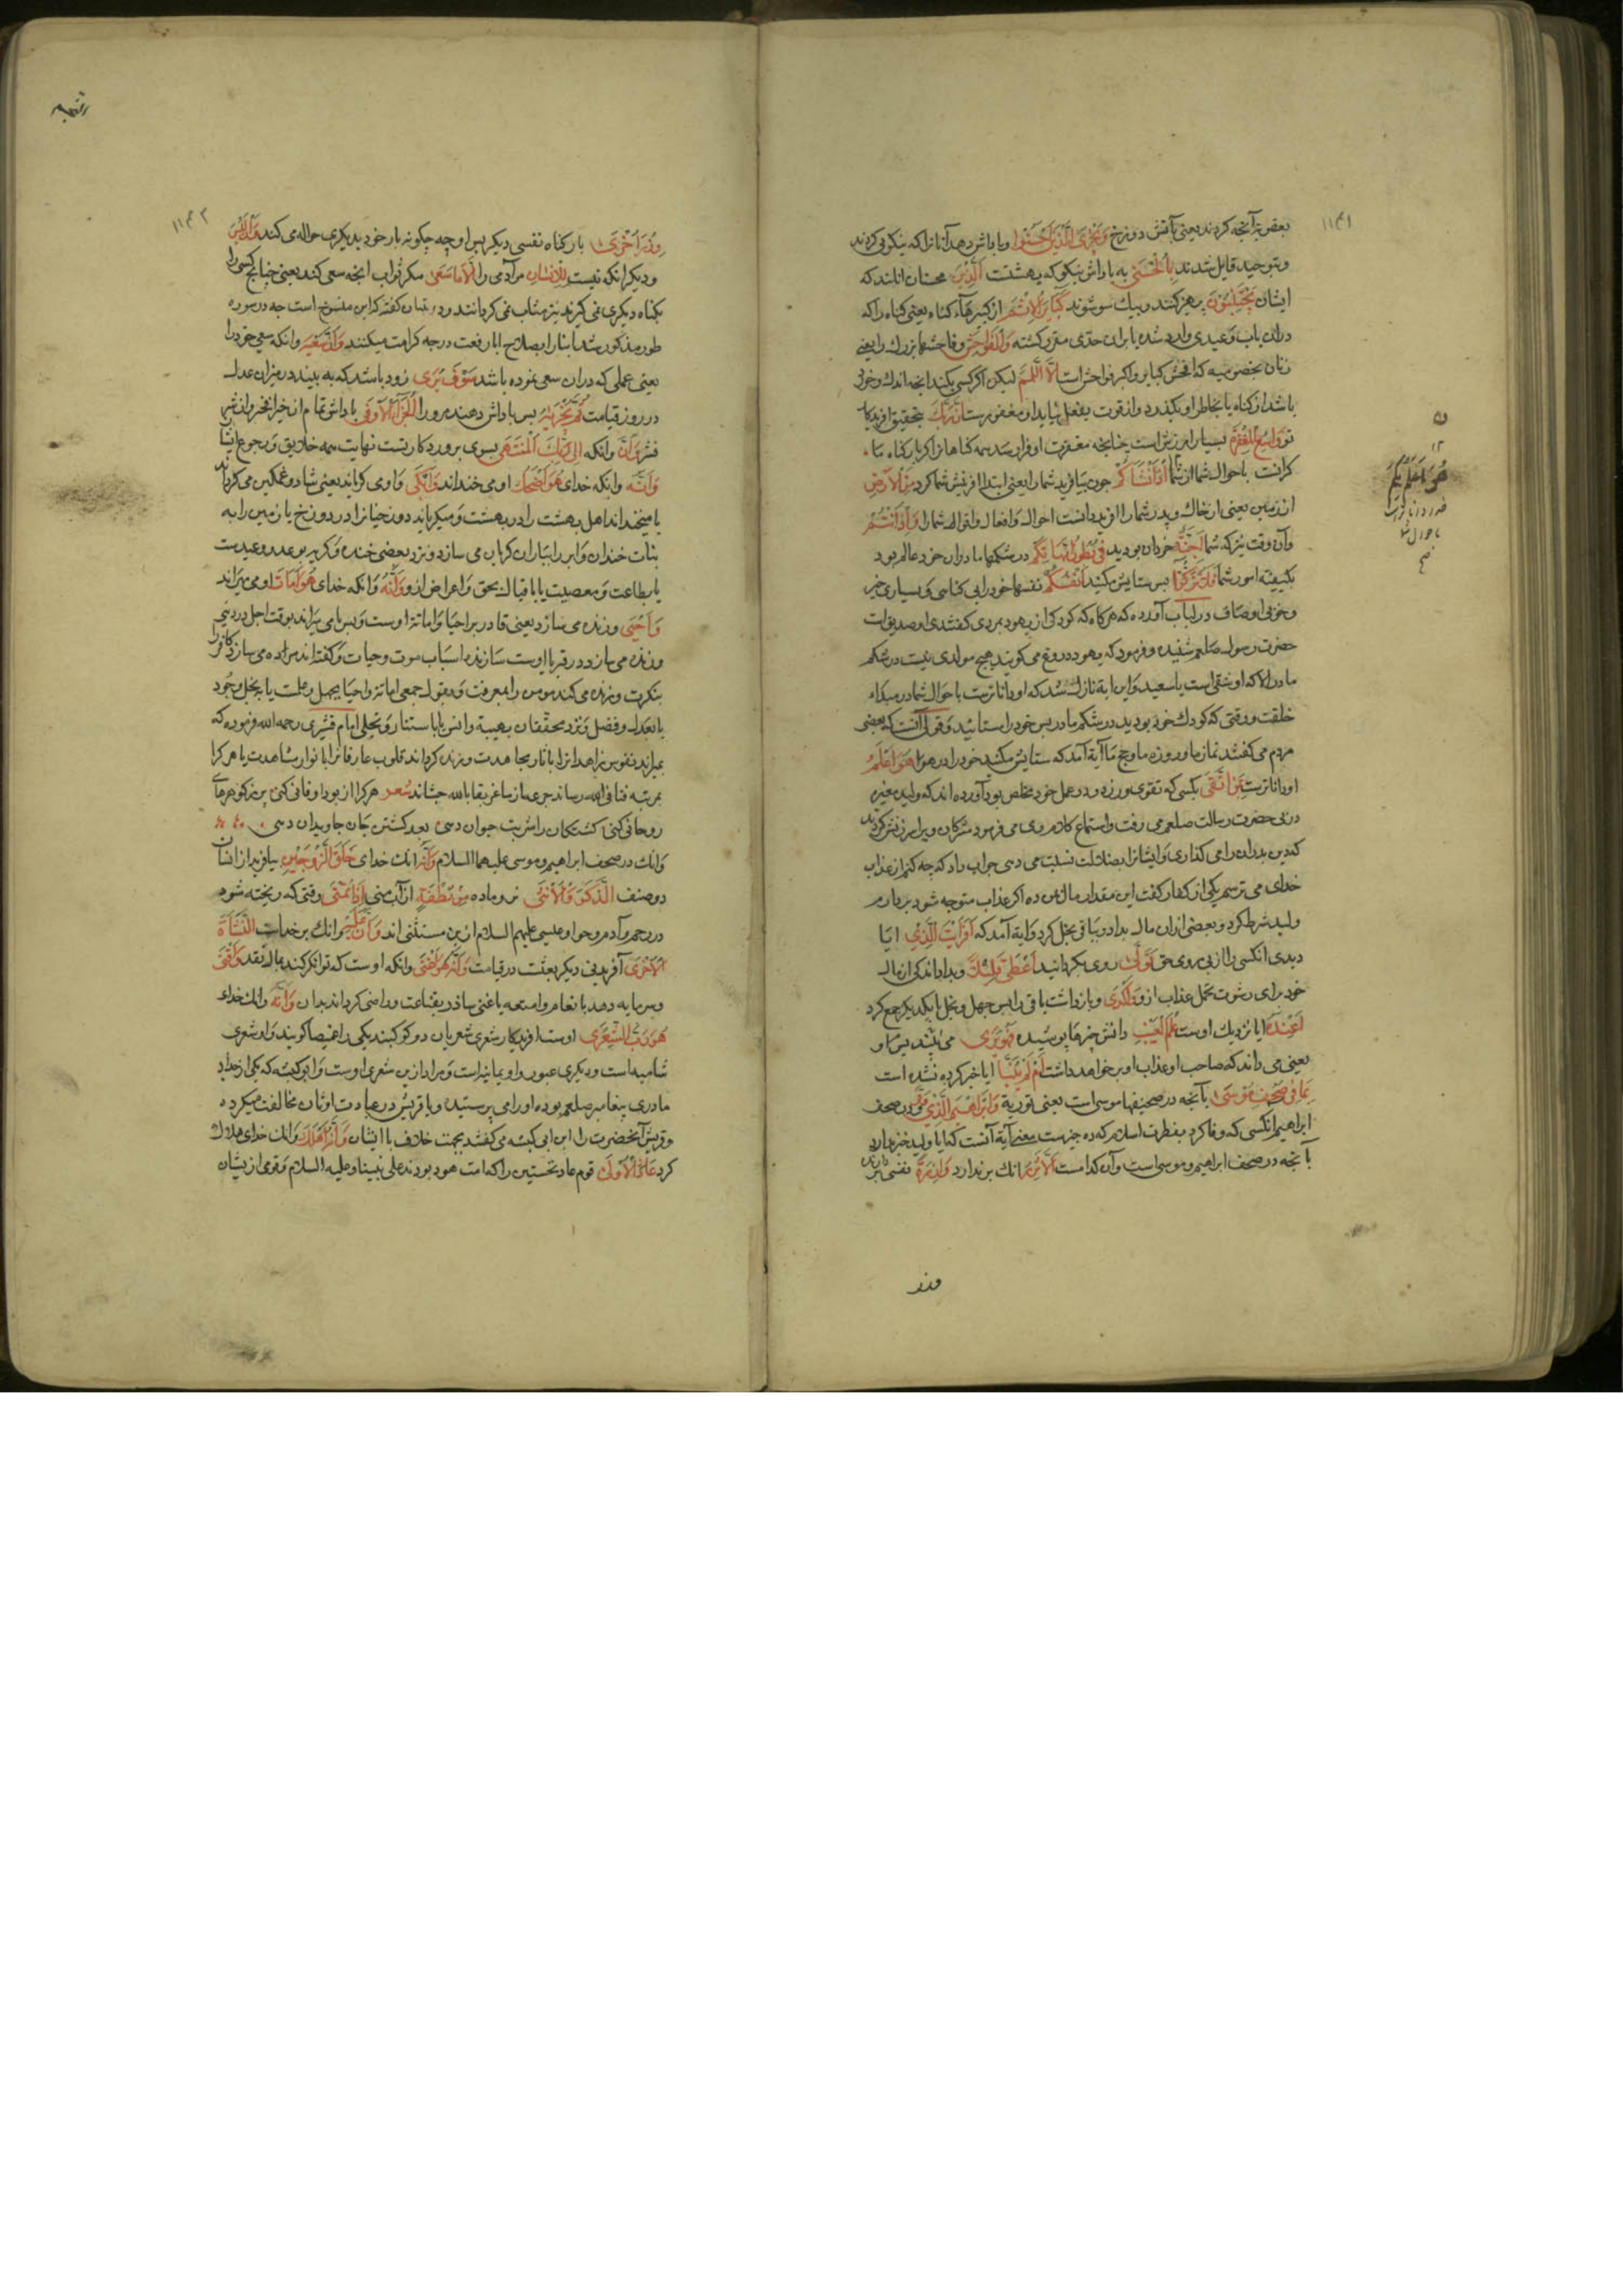 ۱۱۴۱
بعقوبة آنچه کردند یعنی بآتش دوزخ وَیَجْزِیَ الَّذِینَ اَحْسَنُوا و پاداش دهد آنانرا که نیکویی کردند
و بتوحید قایل شدند بِالْحُسْنَی به پاداش نیکو که بهشتست اَلَّذِینَ محسنان آنانند که
ایشان یَجْتَنِبُونَ پرهیز کنند و بیک سو شوند کَبَائِرَ الْاِثْمِ از کبیرهاء کناه یعنی کناه را که
دران باب وعیدی وارد شده یا بران حدی مترتب کشته وَالْفَوَاحِشَ و فاحشها بزرك را یعنی
زنان بخصوصیه که افحش کبایر و اکبر فواحش است اِلَّا اللَّمَمَ لیکن اکر کسی بکند انچه اندك و خرد
باشد از کناه یا بخاطر او بکذرد و از قوت بفعل نیاید ان مغفورست اِنَّ رَبَّكَ بتحقیق افریدکار
تو وَاسِعُ الْمَغْفِرَةِ بسیار امرزش است چنانچه مغفرت او فرا رسد همه کناهانرا
باحوال شما از شما اِذْ اَنْشَاَکُمْ چون بیافرید شما را یعنی ابتدا افرینش شما کرد مِنَ الْاَرْضِ
از زمین یعنی از خاك و پدر شما را افرید دانست احوال و افعال و اقوال شما را وَاِذْ اَنْتُمْ
وآن وقت نیز که شما اَجِنَّةٌ خردان بودید فِی بُطُونِ اُمَّهَاتِکُمْ در شکمها مادران خود عالم بود
بکیفیة امور شما فَلَا تُزَکُّوا پس ستایش مکنید اَنْفُسَکُمْ نفسها خود را بی کناهی و بسیاری خیر
و خوبی اوصاف در لباب آورده که هرکاه که کودکی از یهود بمردی کفتندی او صدیق است
حضرت رسول صلعم شنیده و فرمود که یهود دروغ می کویند هیچ مولدی نیست در شکم
مادر الا که او شقی است یا سعید و این ایة نازل شد که او داناترست باحوال شما در مبداء
خلقت و وقتی که کودك خرد بودید در شکم مادر پس خود را ستائید و قولی آنست که بعضی
مردم می کفتند نماز ما و روزه ما و حج ما آیة آمد که ستایش مکنید خود را هُوَ اَعْلَمُ
او داناترست بِمَنِ اتَّقَی بکسی که تقوی ورزد و در عمل خود مخلص بود آورده اند که ولید مغیره
در پی حضرت رسالت صلعم می رفت و استماع کلام وی می فرمود مشرکان ویرا سرزنش کردند
که دین پدران را می کذاری و ایشانرا بضلالت نسبت می دهی جواب داد که چه کنم از عذاب
خدای می ترسم یکی از کفار کفت این مقدار مال بمن ده اکر عذاب متوجه شود بردارم
ولید شرط کرد و بعضی ازان مال بداد و بباقی بخل کرد و ایة آمد که اَفَرَاَیْتَ الَّذِی ایا
دیدی انکسی را از پی روی حق تَوَلَّی روی بکردانید وَاَعْطَی قَلِیلًا و بداد اندکی از مال
خود برای رشوت تحمل عذاب ازو وَاَکْدَی و بازداشت باقی را پس جهل و بخل با یکدیکر جمع کرد
اَعِنْدَهُ ایا نزدیك اوست عِلْمُ الْغَیْبِ دانش چیزها پوشیده فَهُوَ یَرَی
یعنی می داند که صاحب او عذاب او بر خواهد داشت اَمْ لَمْ یُنَبَّأْ ایا خبر کرده نشده است
بِمَا فِی صُحُفِ مُوسَی بآنچه در صحیفها موسی است یعنی توریة وَاِبْرَاهِیمَ الَّذِی وَفَّی و در صحف
ابراهیم انکسی که وفا کرد
بآنچه در صحف ابراهیم و موسی است و آن کدامست اَلَّا تَزِرُ انك بر ندارد وَازِرَةٌ نفسی بردارنده
هُوَ اَعْلَمُ بِکُمْ
باحوال شما
صح
وزر
۱۱۴۲
وِزْرَ اُخْرَی بار کناه نفسی دیکر پس او چه چکونه بار خود بدیکری حواله می کند وَاَنْ لَیْسَ
و دیکر انکه نیست لِلْاِنْسَانِ مر آدمی را اِلَّا مَا سَعَی مکر ثواب انچه سعی کند یعنی چنانچه کسی را
بکناه دیکری نمی کیرند نیز مثاب نمی کردانند در تبیان کفته که این منسوخ است چه در سوره
طور مذکور شد ابناء را بصلاح ابا رفعت درجه کرامت میکنند وَاَنَّ سَعْیَهُ وانکه سعی خود را
یعنی عملی که دران سعی نموده باشد سَوْفَ یُرَی زود باشد که به بیند در میزان عدل
در روز قیامت ثُمَّ یُجْزَیهُ پس پاداش دهند مرورا الْجَزَاءَ الْاَوْفَی پاداش تمام از خیر
وَاَنَّ وانکه اِلَی رَبِّكَ الْمُنْتَهَی بسوی پروردکار تست نهایت همه خلایق و رجوع ایشان
وَاَنَّهُ وانکه خدای هُوَ اَضْحَكَ او می خنداند وَاَبْکَی و او می کریاند یعنی شاد و غمکین می کرداند
یا میخنداند اهل بهشت را در بهشت و میکریاند دوزخیانرا در دوزخ یا زمین را به
نبات خندان و ابر را بباران کریان می سازد و نزد بعضی خنده و کریه بوعد و وعیدست
یا بطاعت و معصیت یا باقبال بحق و اعراض ازو وَاَنَّهُ وانکه خدای هُوَ اَمَاتَ او می میراند
وَاَحْیَی و زنده می سازد یعنی قادر بر احیا و اماتة اوست و بس می میراند بوقت اجل در دنیی
و زنده می سازد در قبر یا اوست سازنده اسباب موت و حیات و کفته اند مرده می سازد کافر را
بنکرت و زنده می کند مومن را بمعرفت و بقول جمعی اماتة و احیا بجهل و علمست یا ببخل و جود
یا بعدل و فضل و نزد محققان بهیبة وانس یا باستتار و تجلی امام قشیری رحمه الله فرموده که
بمیراند نفوس زاهدانرا باثار مجاهدت و زنده کرداند قلوب عارفانرا بانوار مشاهدت یا هر کرا
بمرتبه فنا فی الله رساند جرعه از ساغر بقا بالله چشاند شعر هرکرا از بود او فانی کنی
روحانی کنی کشتکان را شربت حیوان دهی بعد کشتن جان جاویدان دهی
وانك در صحف ابراهیم و موسی علیهما السلام وَاَنَّهُ انك خدای خَلَقَ الزَّوْجَیْنِ بیافرید از انسان
دو صنف الذَّکَرَ وَالْاُنْثَی نر و ماده مِنْ نُطْفَةٍ از آب منی اِذَا تُمْنَی وقتی که ریخته شود
در رحم و آدم و حوا و عیسی علیهم السلام ازین مستثنی اند وَاَنَّ عَلَیْهِ وانك بر خداست النَّشْاَةَ
الْاُخْرَی آفریدنی دیکر بعثت در قیامت وَاَنَّهُ هُوَ اَغْنَی وانکه اوست که توانکر کند بمال نقد وَاَقْنَی
و سرمایه دهد بانعام و امتعه یا غنی سازد بقناعت و راضی کرداند بدان وَاَنَّهُ وانك خدای
هُوَ رَبُّ الشِّعْرَی اوست افریدکار شعری شعریان دو کوکبند یکی را غمیصا کویند و او شعری
شامیه است و دیکری عبور و او یمانیه است و مراد ازین شعری اوست و ابو کبشه که یکی از اجداد
مادری پیغامبر صلعم بوده او را می پرستید و با قریش در عبادت اوثان مخالفت میکرده
و قریش آنحضرت را ابن ابی کبشه می کفتند بجهت خلاف با ایشان وَاَنَّهُ اَهْلَكَ وانك خدای هلاك
کرد عَادًا الْاُولَی قوم عاد نخستین را که امت هود بودند علی نبینا و علیه السلام و قومی از یشان